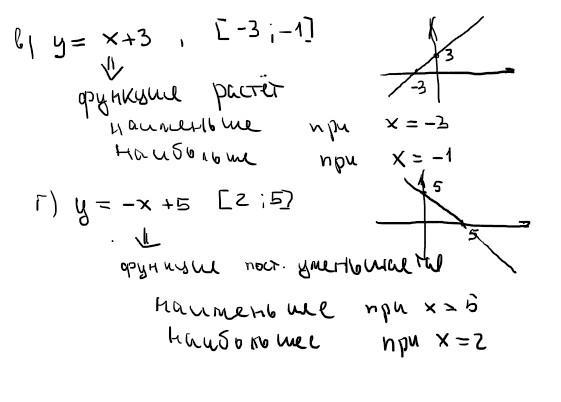 в) y = x+3 , [-3 ; -1]
3
-3
⇓
функция растёт
наименьше при x = -3
наибольше при x = -1
г) y = -x +5 [2 ; 5]
5
5
⇓
функция пост. уменьшается
наименьшее при x = 5
наибольшее при x = 2